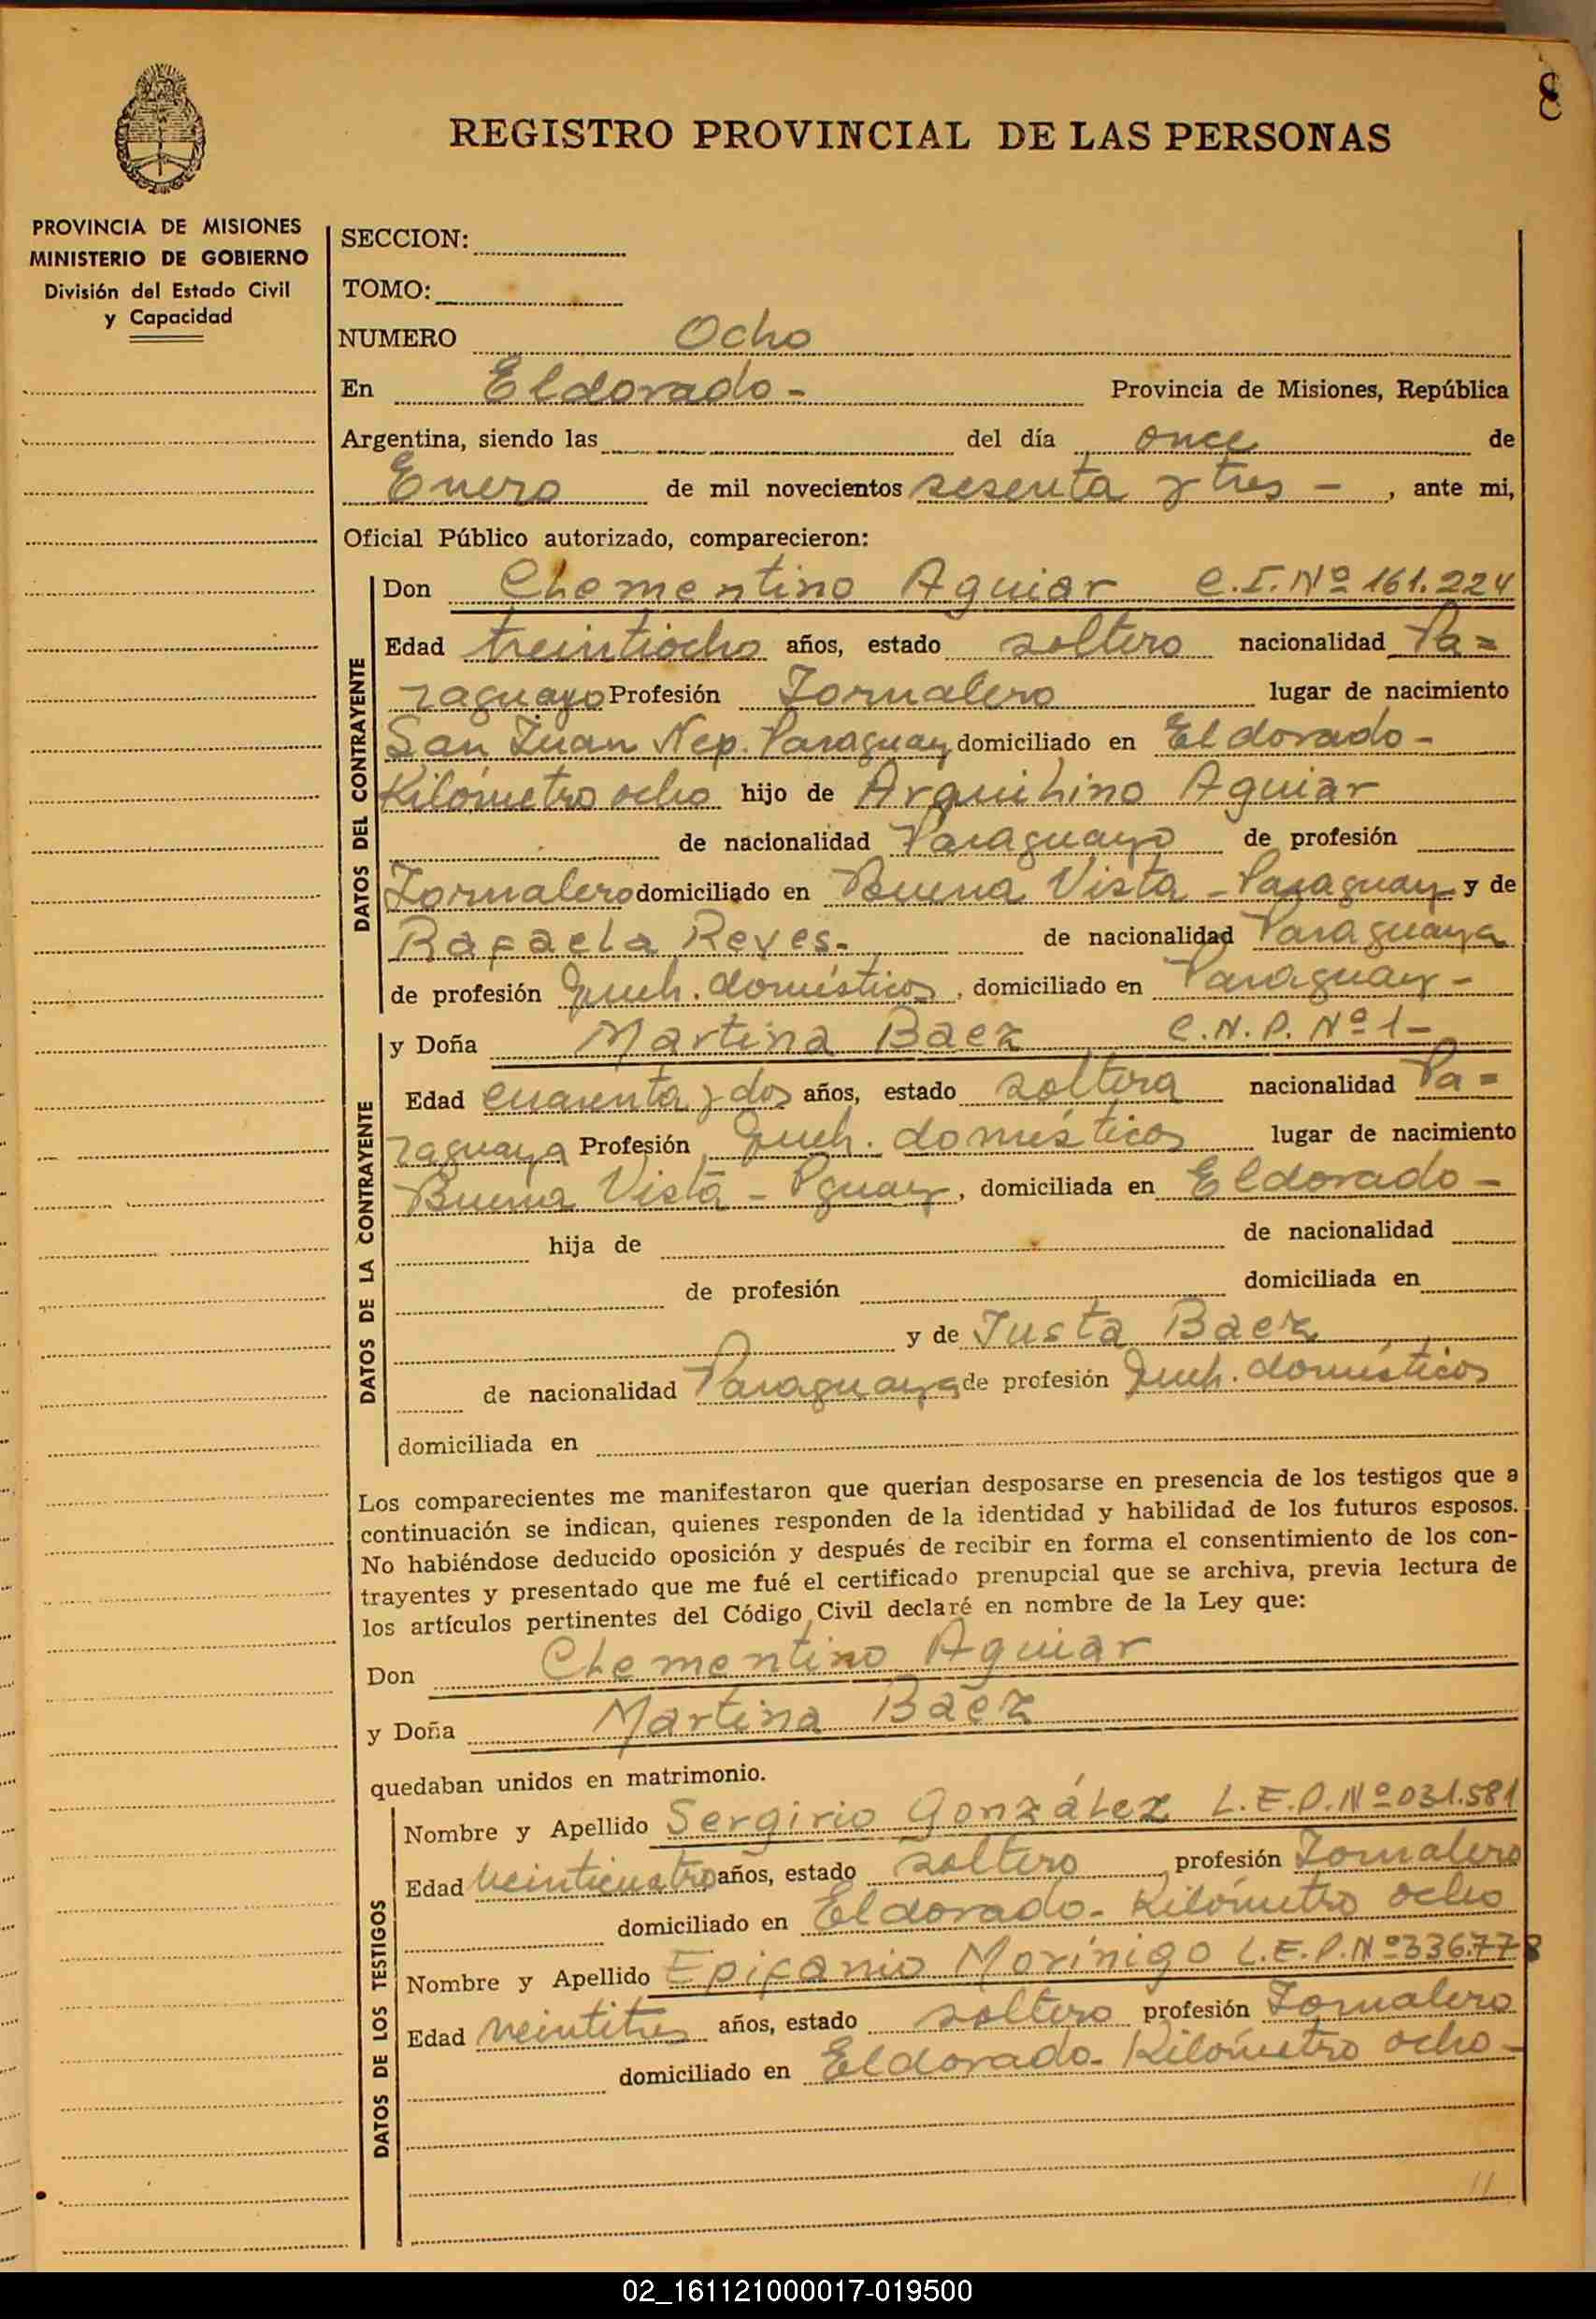 8
REGISTRO PROVINCIAL DE LAS PERSONAS
PROVINCIA DE MISIONES
MINISTERIO DE GOBIERNO
División del Estado Civil
y Capacidad
SECCION:
TOMO:
NUMERO Ocho
En Eldorado - Provincia de Misiones, República
Argentina, siendo las del día once de
Enero de mil novecientos sesenta y tres - , ante mi,
Oficial Público autorizado, comparecieron:
DATOS DEL CONTRAYENTE
Don Clementino Aguiar C.I. Nº 161.224
Edad treintiocho años, estado soltero nacionalidad Pa=
raguayo Profesión Jornalero lugar de nacimiento
San Juan Nep. Paraguay domiciliado en Eldorado -
Kilómetro ocho hijo de Arquilino Aguiar
de nacionalidad Paraguayo de profesión
Jornalero domiciliado en Buena Vista - Paraguay y de
Rafaela Reyes - de nacionalidad Paraguaya
de profesión domésticos, domiciliado en Paraguay -
DATOS DE LA CONTRAYENTE
y Doña Martina Baez C.N.P. Nº 1 -
Edad cuarenta y dos años, estado soltera nacionalidad Pa=
raguaya Profesión domésticos lugar de nacimiento
Buena Vista - Pguay, domiciliada en Eldorado -
hija de de nacionalidad
de profesión domiciliada en
y de Justa Baez
de nacionalidad Paraguaya de profesión domésticos
domiciliada en
Los comparecientes me manifestaron que querían desposarse en presencia de los testigos que a
continuación se indican, quienes responden de la identidad y habilidad de los futuros esposos.
No habiéndose deducido oposición y después de recibir en forma el consentimiento de los con-
trayentes y presentado que me fué el certificado prenupcial que se archiva, previa lectura de
los artículos pertinentes del Código Civil declaré en nombre de la Ley que:
Don Clementino Aguiar
y Doña Martina Baez
quedaban unidos en matrimonio.
DATOS DE LOS TESTIGOS
Nombre y Apellido Sergirio González L.E.P. Nº 031.581
Edad veinticuatro años, estado soltero profesión Jornalero
domiciliado en Eldorado - Kilómetro ocho
Nombre y Apellido Epifanio Morínigo L.E.P. Nº 336.778
Edad veintitres años, estado soltero profesión Jornalero
domiciliado en Eldorado - Kilómetro ocho -
02_161121000017-019500